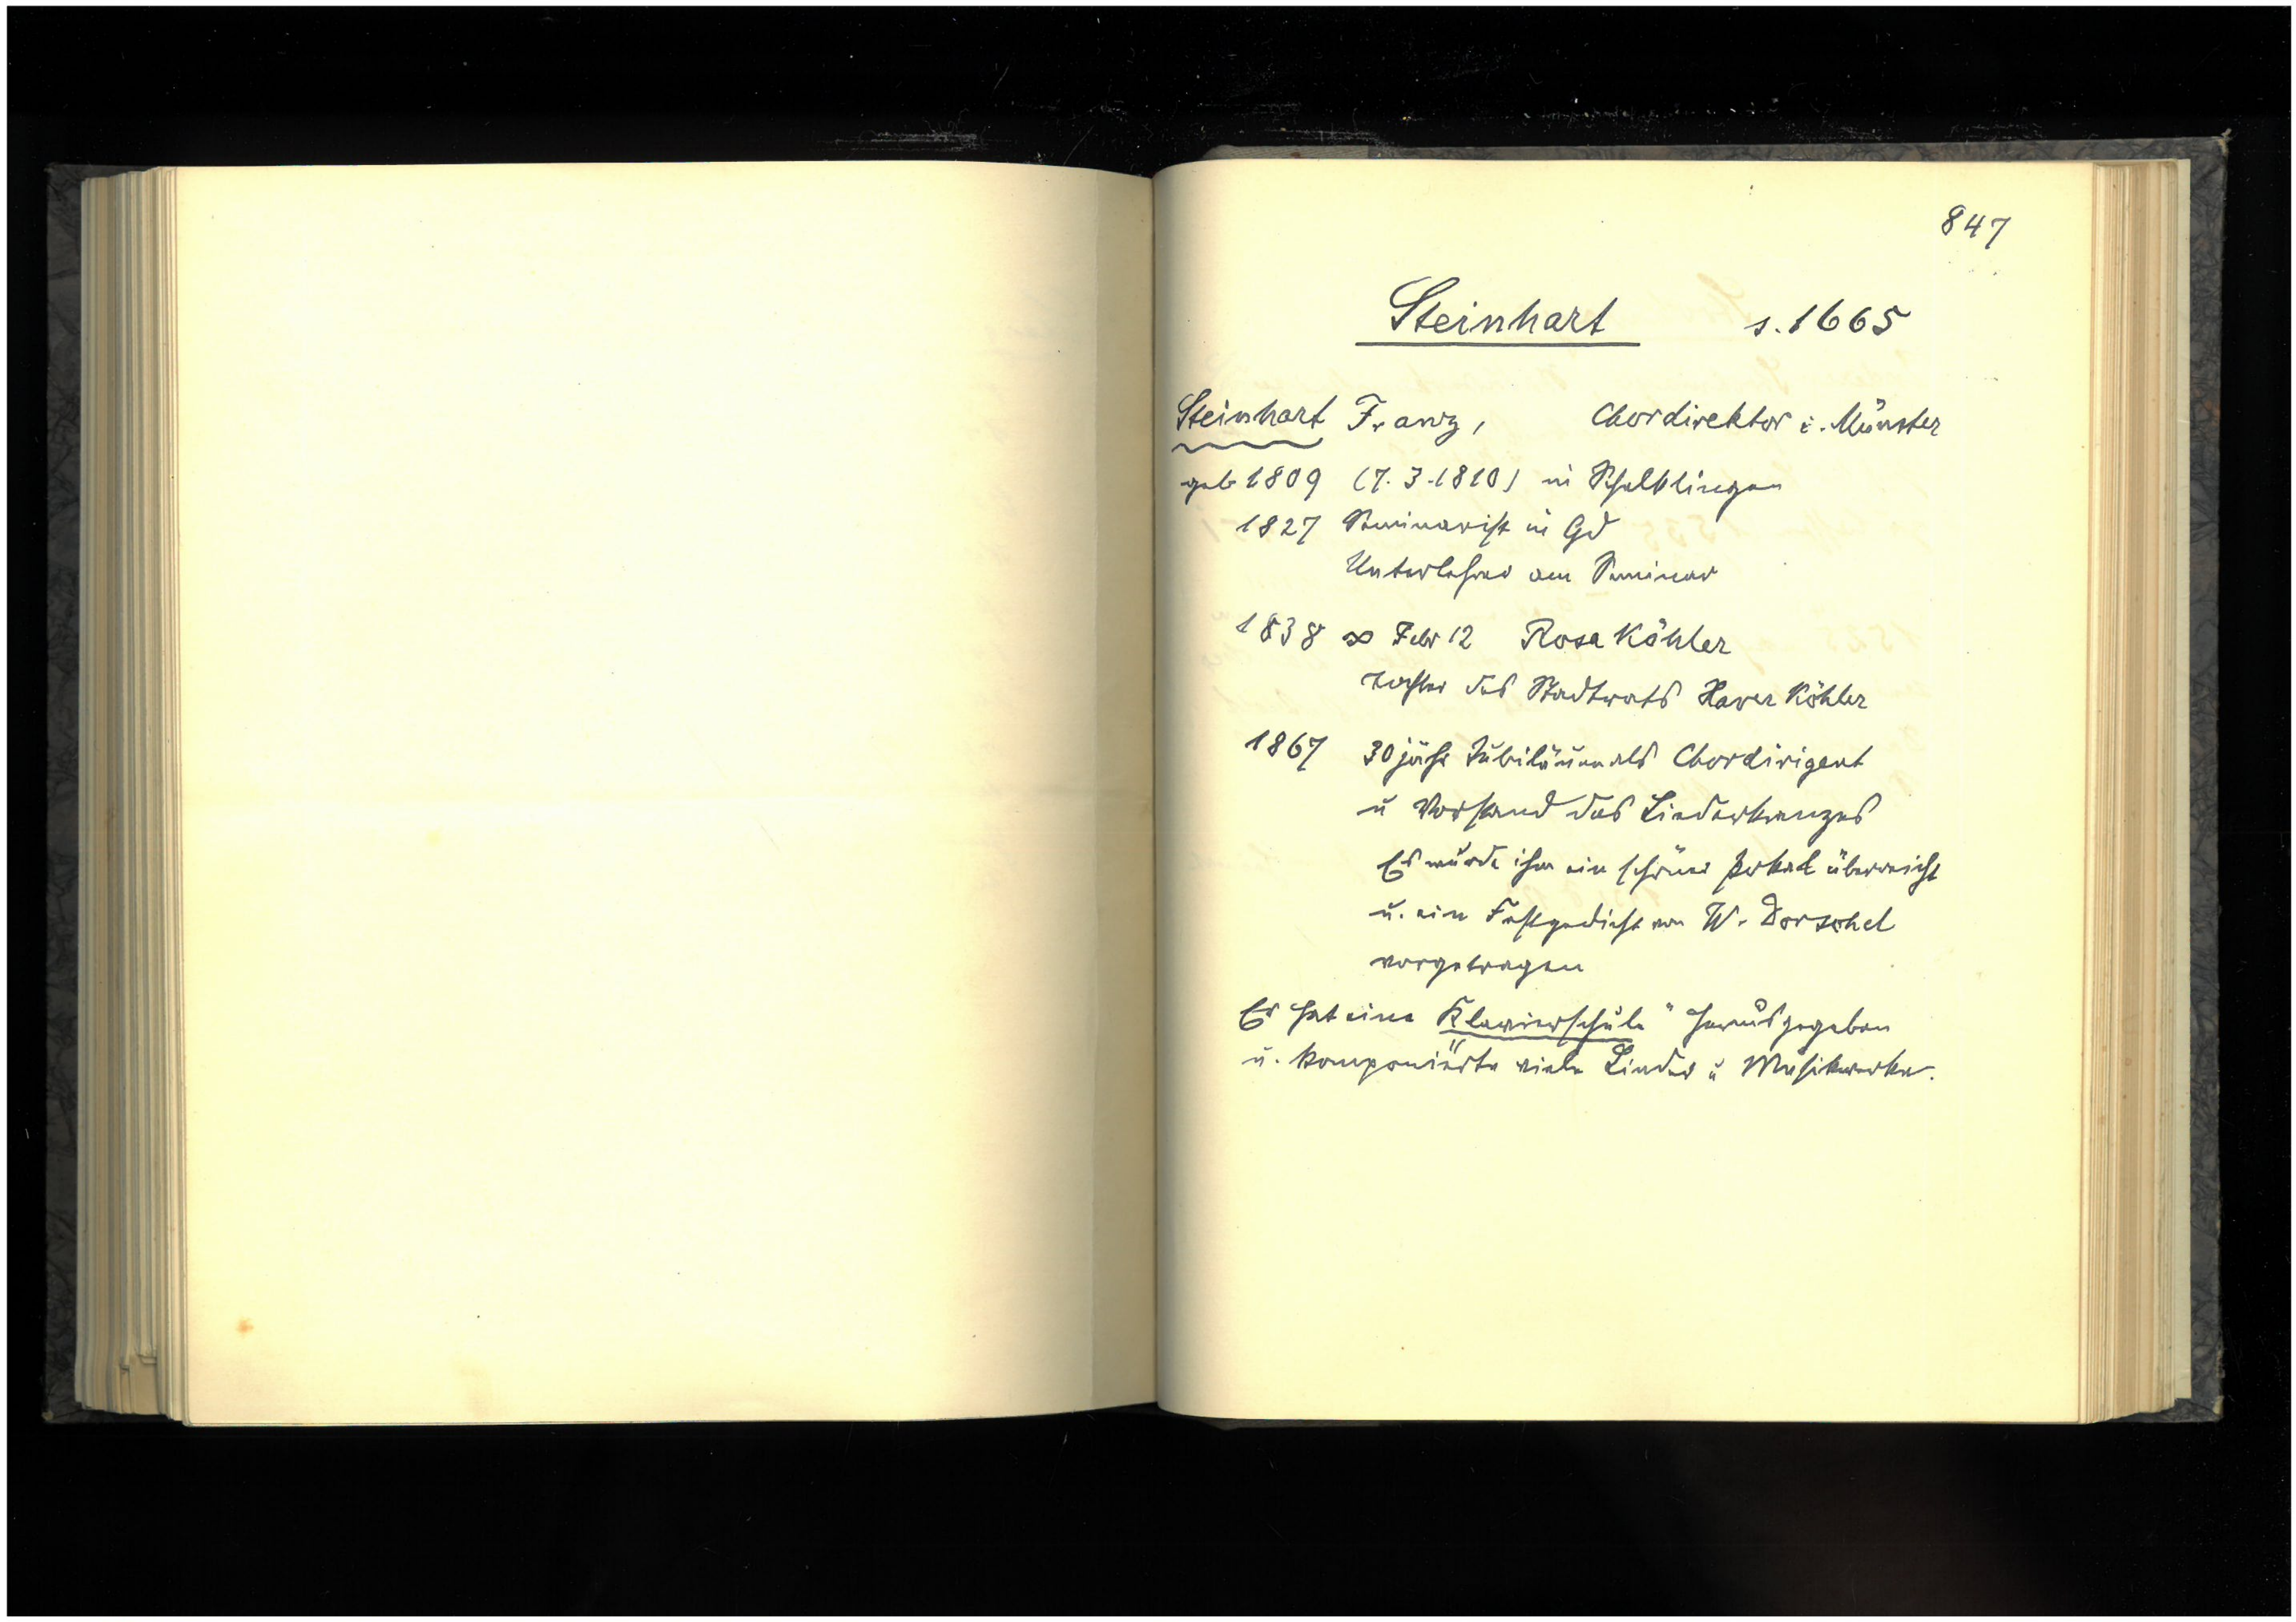 847
Steinhart s. 1665
Steinhart Franz, Chordirektor i. Münster
geb 1809 (7. 3. 1810) in Schelklingen
1827 Seminarist in Gd
Unterlehrer am Seminar
1838 ∞ Febr 12 Rosa Köhler
Tochter des Stadtrats Xaver Köhler
1867 30jähr Jubiläum als Chordirigent
u Vorstand des Liederkranzes
Es wurde ihm ein schöner Pokal überreicht
u. ein Festgedicht von W. Dorschel
vorgetragen
Er hat eine „Klavierschule" herausgegeben
u. komponierte viele Lieder u Musikwerke.